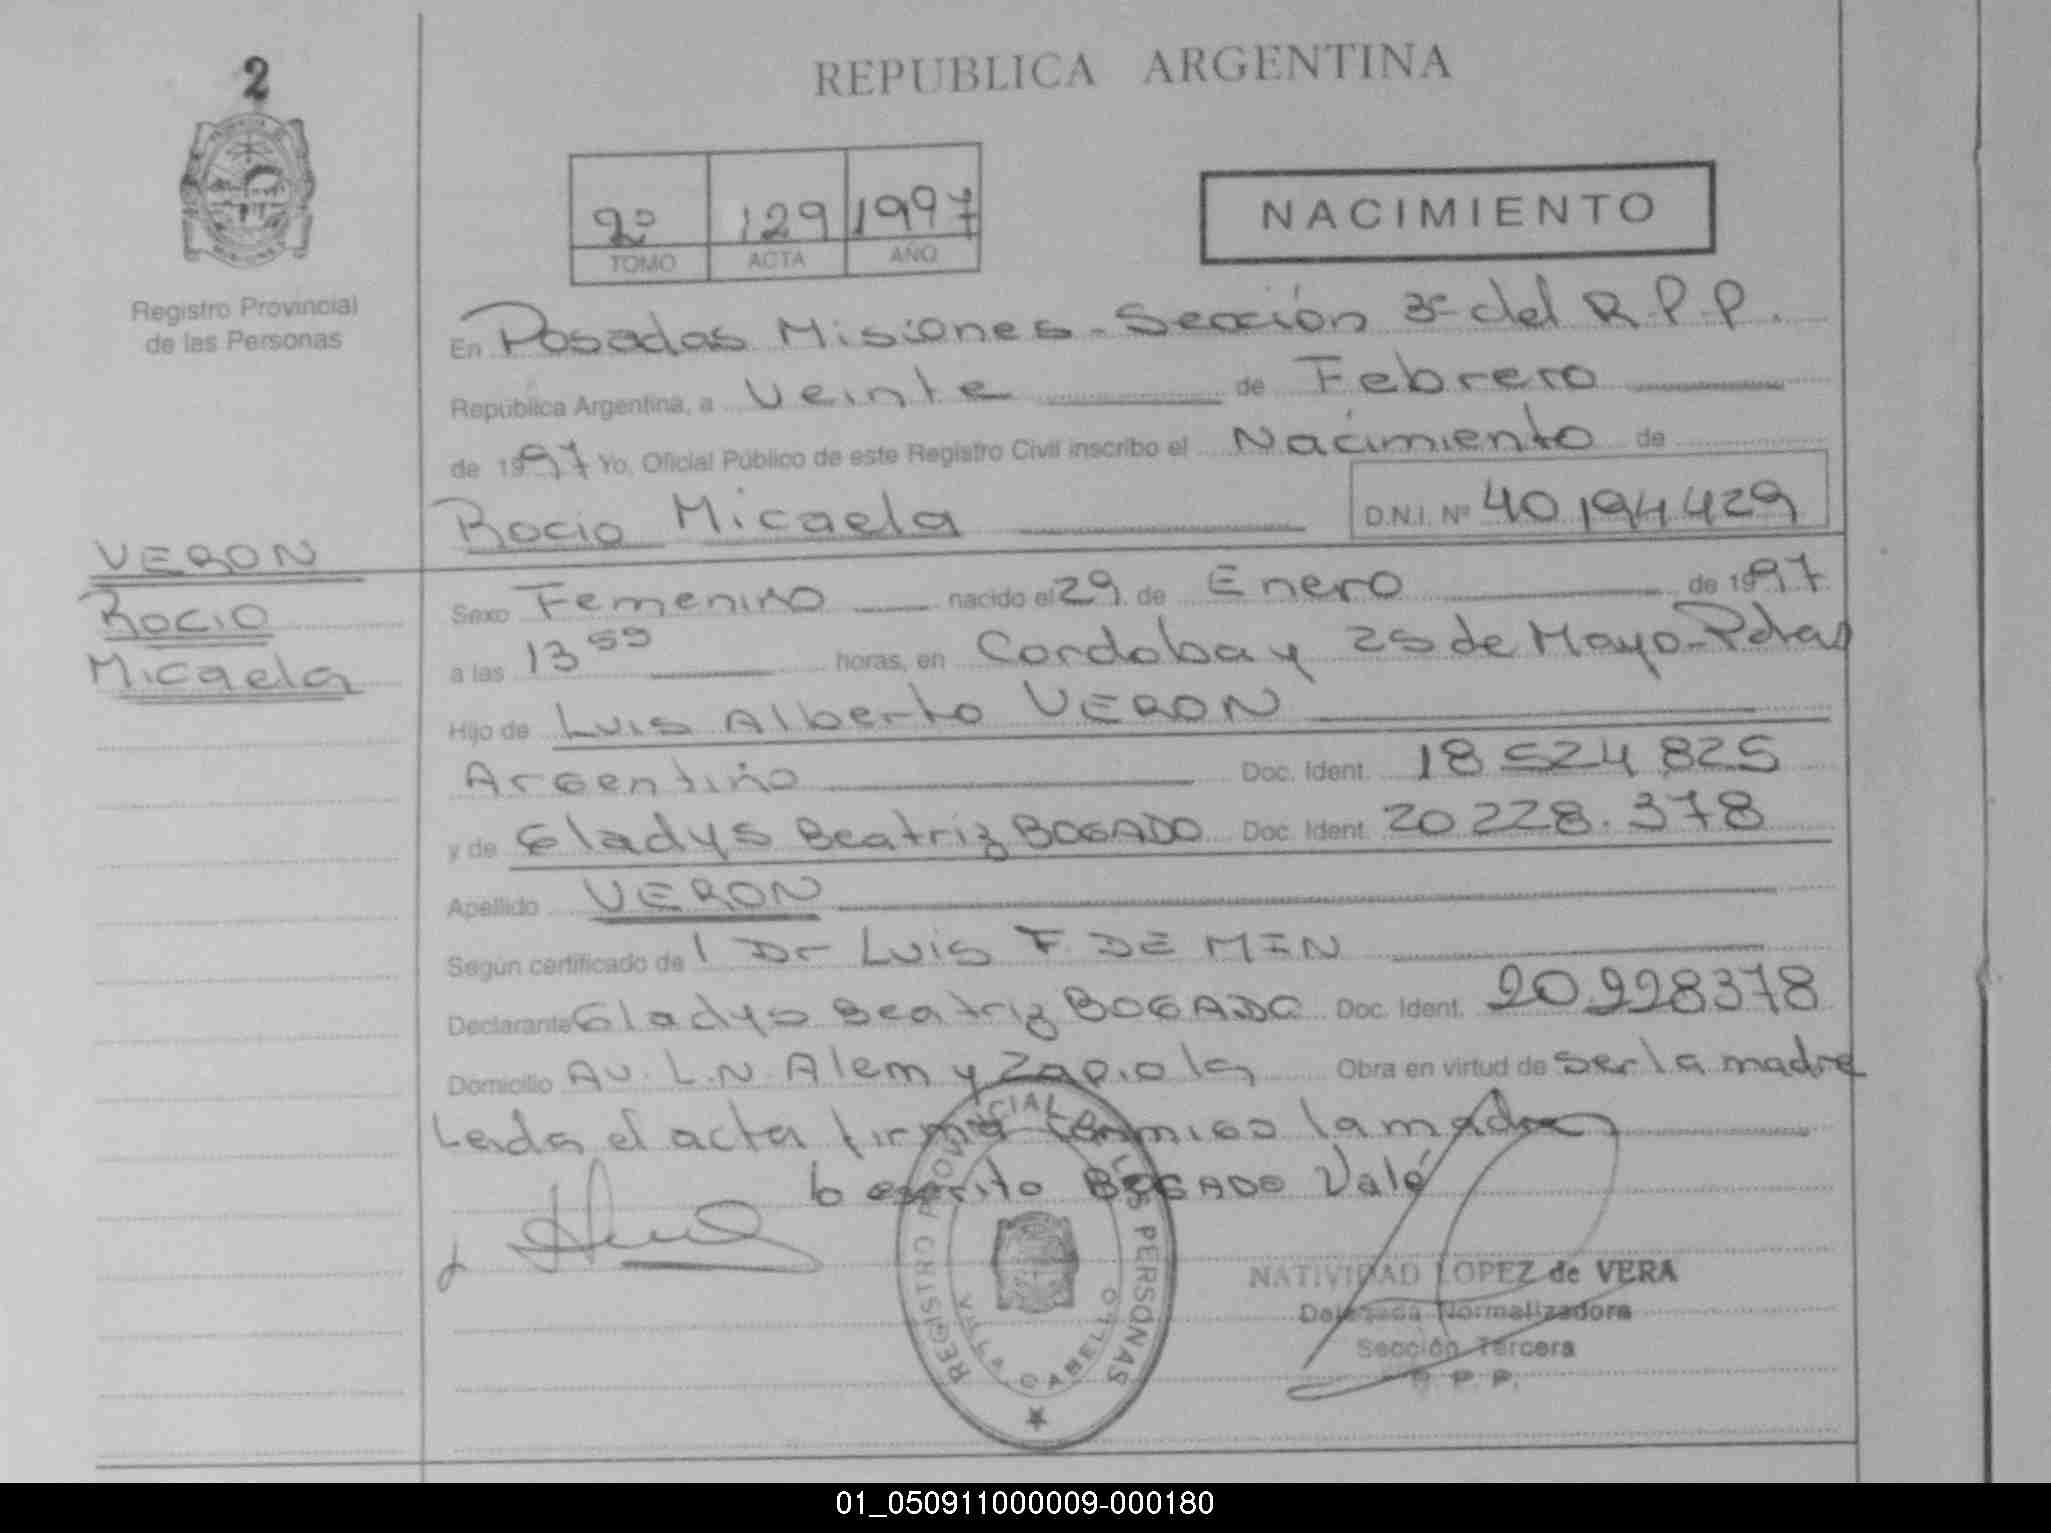 2
REPUBLICA ARGENTINA
2º 129 1997
TOMO ACTA AÑO
NACIMIENTO
Registro Provincial
de las Personas
En Posadas Misiones - Sección 3ª del R.P.P.
República Argentina, a Veinte de Febrero
de 1997 Yo, Oficial Público de este Registro Civil inscribo el Nacimiento de
Rocio Micaela D.N.I. Nº 40194429
VERON
Rocio
Micaela
Sexo Femenino nacido el 29 de Enero de 1997
a las 13 55 horas, en Cordoba y 25 de Mayo - Pdas
Hijo de Luis Alberto VERON
Argentino Doc. Ident. 18524825
y de Gladys Beatriz BOGADO Doc. Ident. 20228.378
Apellido VERON
Según certificado del Dr Luis F. DE MIN
Declarante Gladys Beatriz BOGADO Doc. Ident. 20.228378
Domicilio Av. L.N. Alem y Zapiola Obra en virtud de ser la madre
Leida el acta firma conmigo la madre
lo escrito BOGADO Vale
NATIVIDAD LOPEZ de VERA
Delegada Normalizadora
Sección Tercera
R. P. P.
REGISTRO PROVINCIAL DE LAS PERSONAS
VILLA CABELLO
01_050911000009-000180